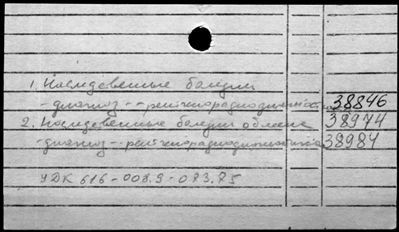 1. Наследвенные болезни
- диагноз - - рентгенорадиодиагностика 38846
2. Наследвенные болезни обмена 38974
- диагноз - - рентгенорадиодиагностика 38984
УДК 616-008.9-073.75